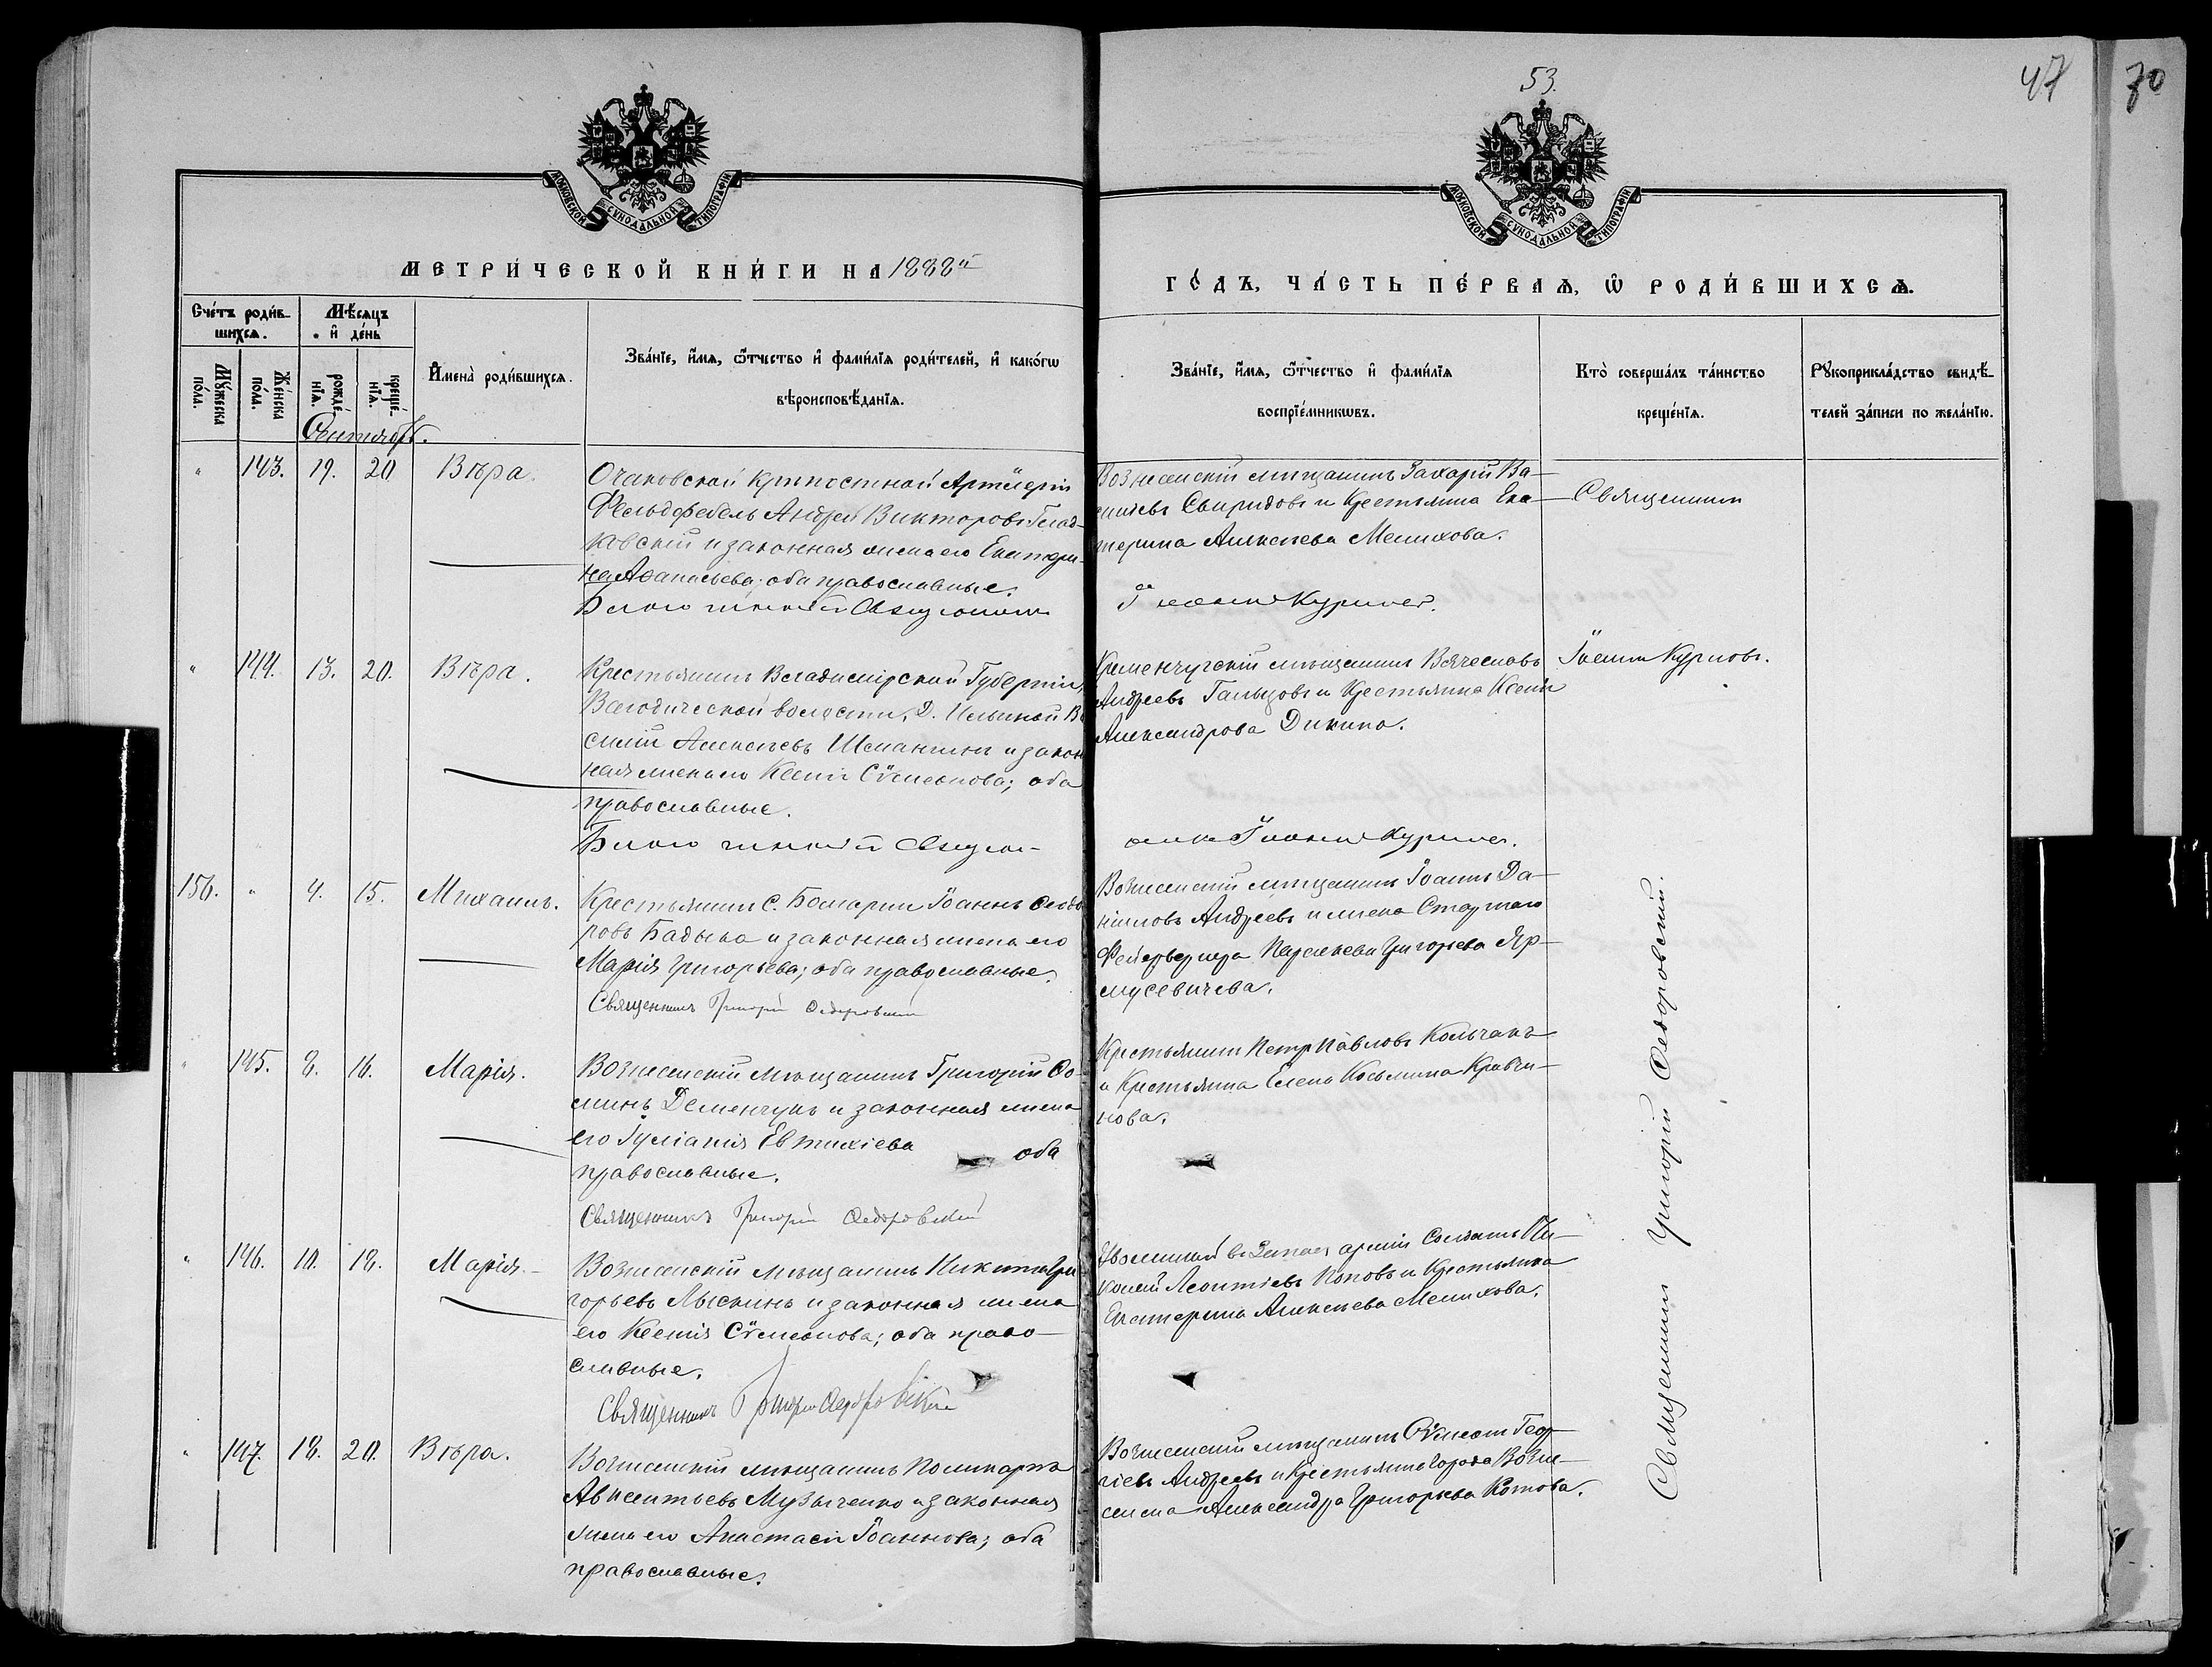 53.
47
70
МОСКОВСКОЙ СѴНОДАЛЬНОЙ ТИПОГРАФІИ
МОСКОВСКОЙ СѴНОДАЛЬНОЙ ТИПОГРАФІИ
МЕТРИ́ЧЕСКОЙ КНИ́ГИ НА 1888й
ГО́ДЪ, ЧА́СТЬ ПЕ́РВАѦ, Ѡ҆ РОДИ́ВШИХСѦ.
Сче́тъ роди́в-
шихсѧ.
Мѣ́сѧцъ
и҆ де́нь
Мꙋ́жеска
по́ла.
Же́нска
по́ла.
рожде́-
нїѧ.
креще́-
нїѧ.
И҆мена̀ роди́вшихсѧ.
Зва́нїе, и҆́мѧ, ѻ҆́тчество и҆ фами́лїѧ роди́телей, и҆ како́гѡ
вѣроисповѣ́данїѧ.
Зва́нїе, и҆́мѧ, ѻ҆́тчество и҆ фами́лїѧ
воспрїе́мникѡвъ.
Кто̀ соверша́лъ та́инство
креще́нїѧ.
Рꙋкоприкла́дство свидѣ́-
телей за́писи по жела́нїю.
Сентябрь.
" 143. 19. 20 Вѣра.
Очаковской Крѣпостной Артилеріи
Фельдфебель Андрей Викторовъ
ковскій и законная жена его Екатери-
на Аѳанасьева; оба православные.
Вознесенскій мѣщанинъ Захарій Ва-
сильевъ Свиридовъ и Крестьянка Ека-
терина Алексѣева Мелихова.
Священникъ
" 144. 13. 20. Вѣра.
Крестьянинъ Владимірской Губерніи,
волости, Д. Ильиной Ва
силій Алексѣевъ и закон
ная жена его Ксенія Сѵмеонова; оба
православные.
Кременчугскій мѣщанинъ Вячеславъ
Андреевъ и Крестьянка Ксенія
Александрова Дикина.
Іоаннъ
156. " 4. 15. Михаилъ.
Крестьянинъ С. Іоаннъ Ѳеодо
ровъ Бадыка и законная жена его
Марія Григорьева; оба православные.
Священникъ Григорій Ѳедоровскій
Вознесенскій мѣщанинъ Іоаннъ Да-
ніиловъ Андреевъ и жена Старшаго
Фейерверкера Параскева Григорьева Яр-
мусевичева.
" 145. 8. 16. Марія.
Вознесенскій мѣщанинъ Григорій Ѳо-
минъ Деменчукъ и законная жена
его Іуліанія Евтихіева оба
православные.
Священникъ Григорій Ѳедоровскій
Крестьянинъ Петръ Павловъ Колчакъ
и Крестьянка Елена Косьмина Кравчи-
нова.
" 146. 10. 18. Марія.
Вознесенскій мѣщанинъ Никита Гри
горьевъ Лыскинъ и законная жена
его Ксенія Сѵмеонова; оба право-
славные.
Священникъ Григорій Ѳедоровскій
въ Запасъ арміи Солдатъ Ни-
колай Леонтіевъ Поповъ и Крестьянка
Екатерина Алексѣева Мелихова.
" 147. 18. 20. Вѣра.
Вознесенскій мѣщанинъ Поликарпъ
Авксентьевъ Музыченко и законная
жена его Анастасія Іоаннова; оба
православные.
Вознесенскій мѣщанинъ Сѵмеонъ Геор-
гіевъ Андреевъ и Крестьянка города Возне-
сенска Александра Григорьева Котова.
Священникъ Григорій Ѳедоровскій.